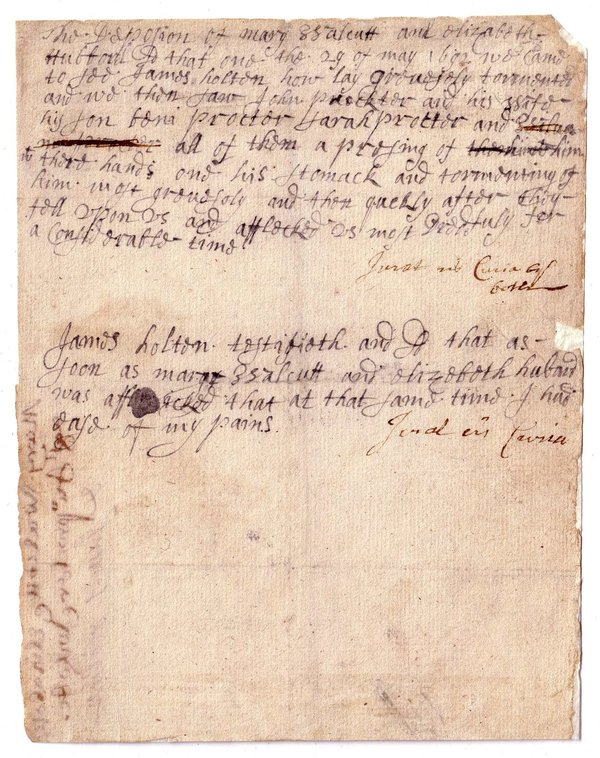 The Deposion of mary walcutt and elizabeth
Hubbord that one the 29 of may 1692 we Came
to see James holten how lay grevesoly tormented
and we then saw John procktter and his wife
his son beni Proctor Sarah protter and
all of them a presing of him
w there hands one his stomack and tormenting of
him most grevesoly and then quckly after they
fell upon us and afflected us most Dredfuly for
a Considerable time
Jurat in Curia by
both
James holten testifieth and that as
soon as mary walcutt and elizebeth hubard
was aff cked that at that same time I had
ease of my pains
Jurat in Curia